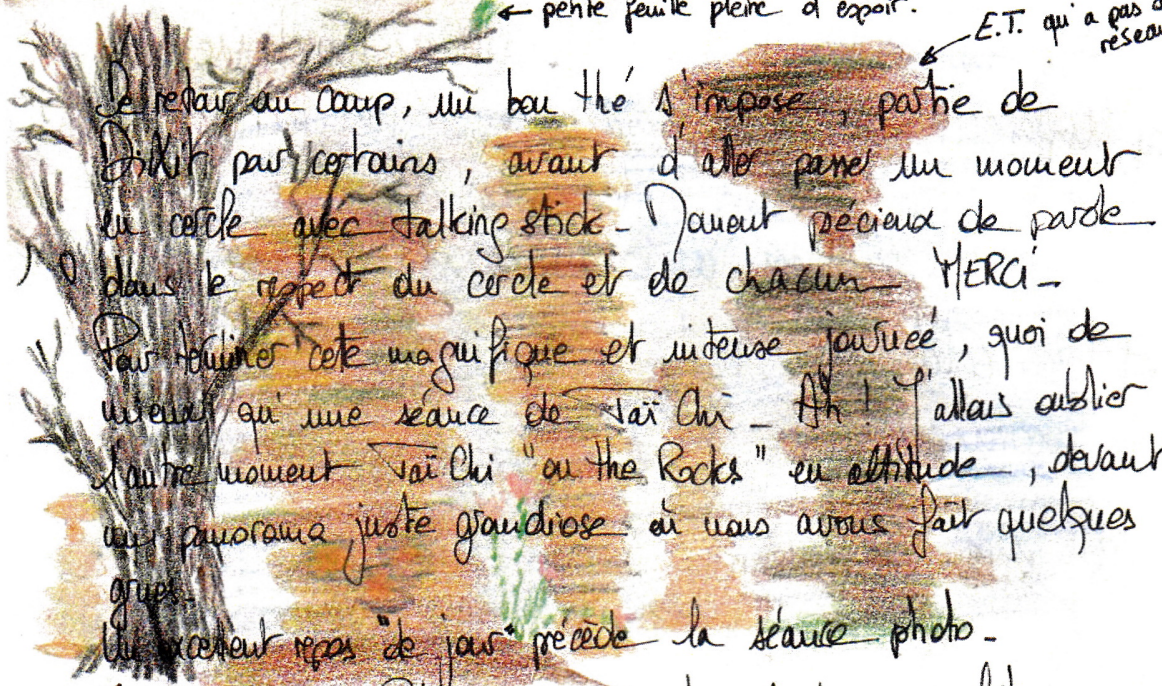 ← petite feuille pleine d'espoir.
E.T. qui a pas
réseau
De retour au camp, un bon thé s'impose, partie de
Dixit pour certains, avant d'aller passer un moment
en cercle avec talking stick_ Moment précieux de parole
dans le respect du cercle et de chacun MERCi_
Pour terminer cette magnifique et intense journée, quoi de
mieux qu'une séance de Taï Chi_ Ah! J'allais oublier
l'autre moment Taï Chi "on the Rocks" en altitude, devant
un panorama juste grandiose où nous avons fait quelques
grues_
Un excellent repas "de jour" précède la séance photo_